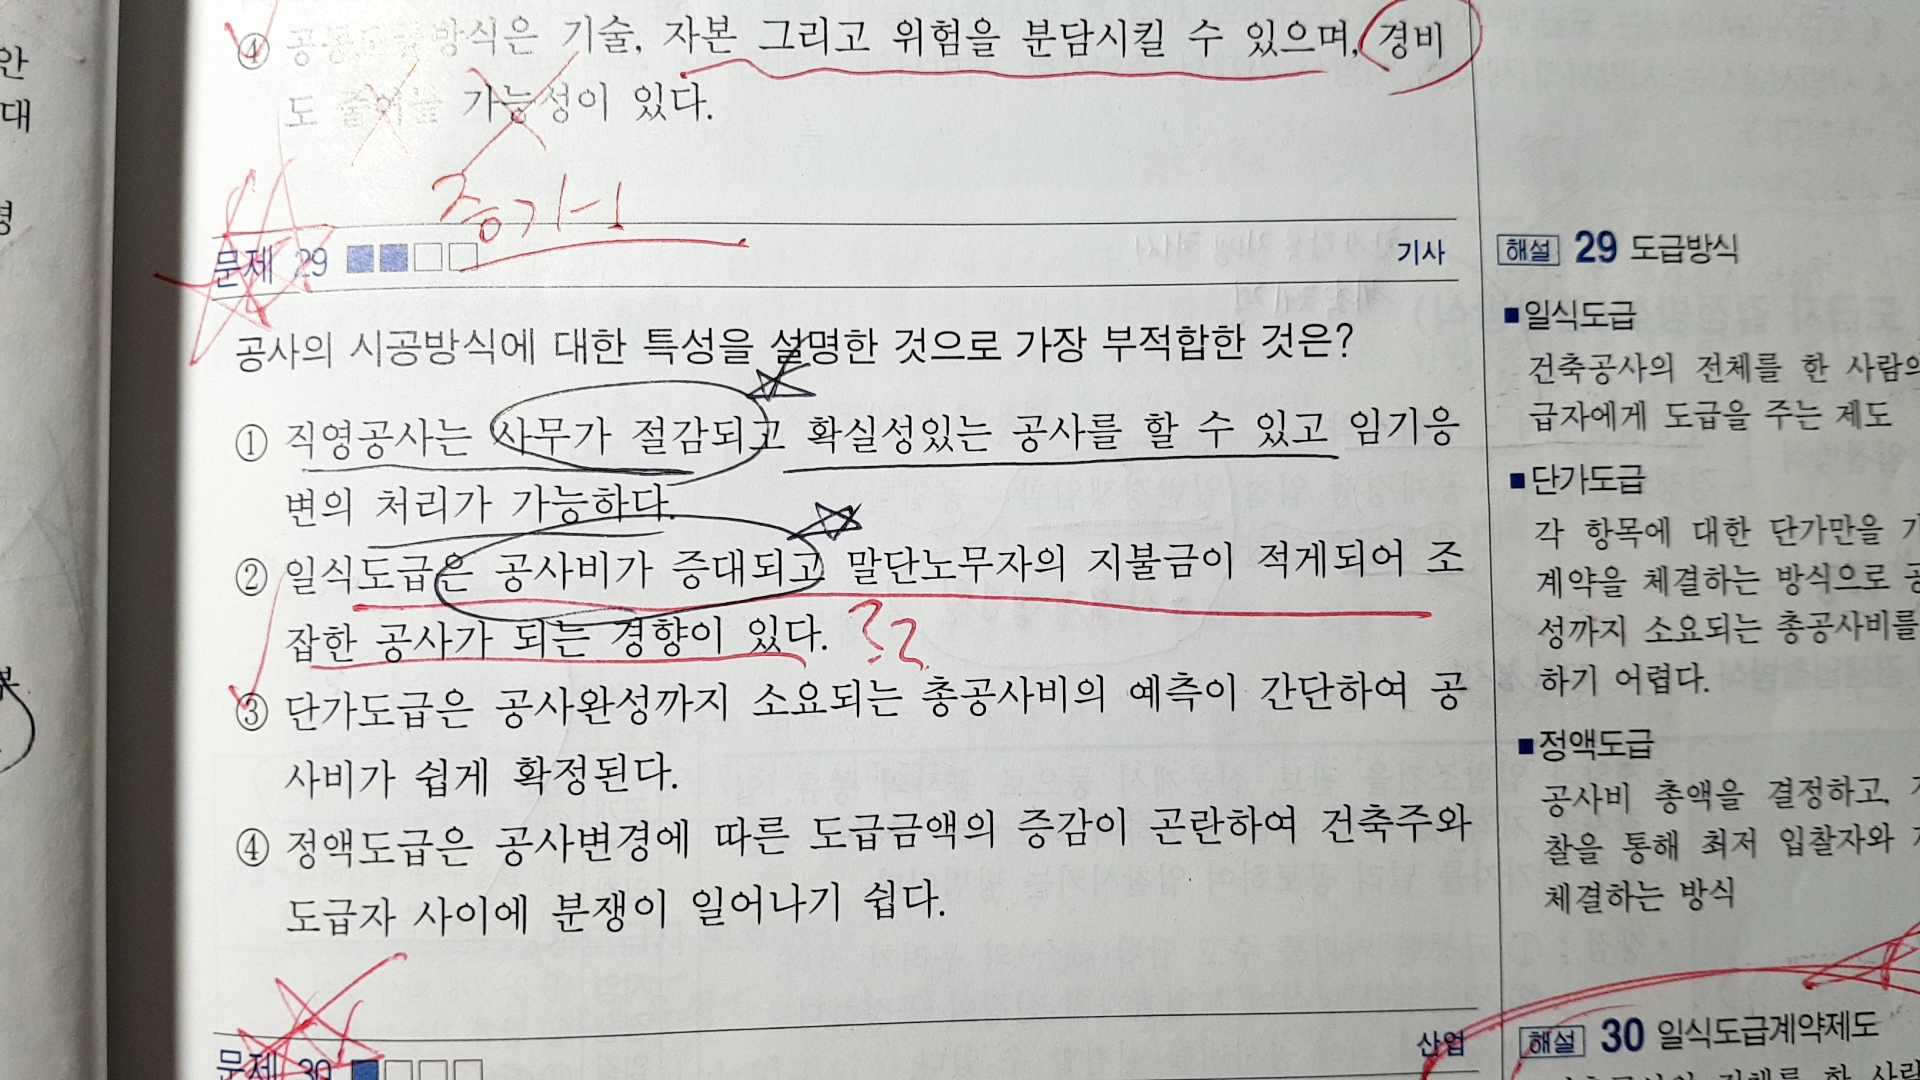 안
대
④ 공동도급방식은 기술, 자본 그리고 위험을 분담시킬 수 있으며, 경비
도 줄어들 가능성이 있다.
증가↑
문제 29 기사
공사의 시공방식에 대한 특성을 설명한 것으로 가장 부적합한 것은?
① 직영공사는 사무가 절감되고 확실성있는 공사를 할 수 있고 임기응
변의 처리가 가능하다.
② 일식도급은 공사비가 증대되고 말단노무자의 지불금이 적게되어 조
잡한 공사가 되는 경향이 있다. ??
③ 단가도급은 공사완성까지 소요되는 총공사비의 예측이 간단하여 공
사비가 쉽게 확정된다.
④ 정액도급은 공사변경에 따른 도급금액의 증감이 곤란하여 건축주와
도급자 사이에 분쟁이 일어나기 쉽다.
문제 30 산업
해설 29 도급방식
■일식도급
건축공사의 전체를 한 사람의
급자에게 도급을 주는 제도
■단가도급
각 항목에 대한 단가만을
계약을 체결하는 방식으로
성까지 소요되는 총공사비를
하기 어렵다.
■정액도급
공사비 총액을 결정하고,
찰을 통해 최저 입찰자와
체결하는 방식
해설 30 일식도급계약제도